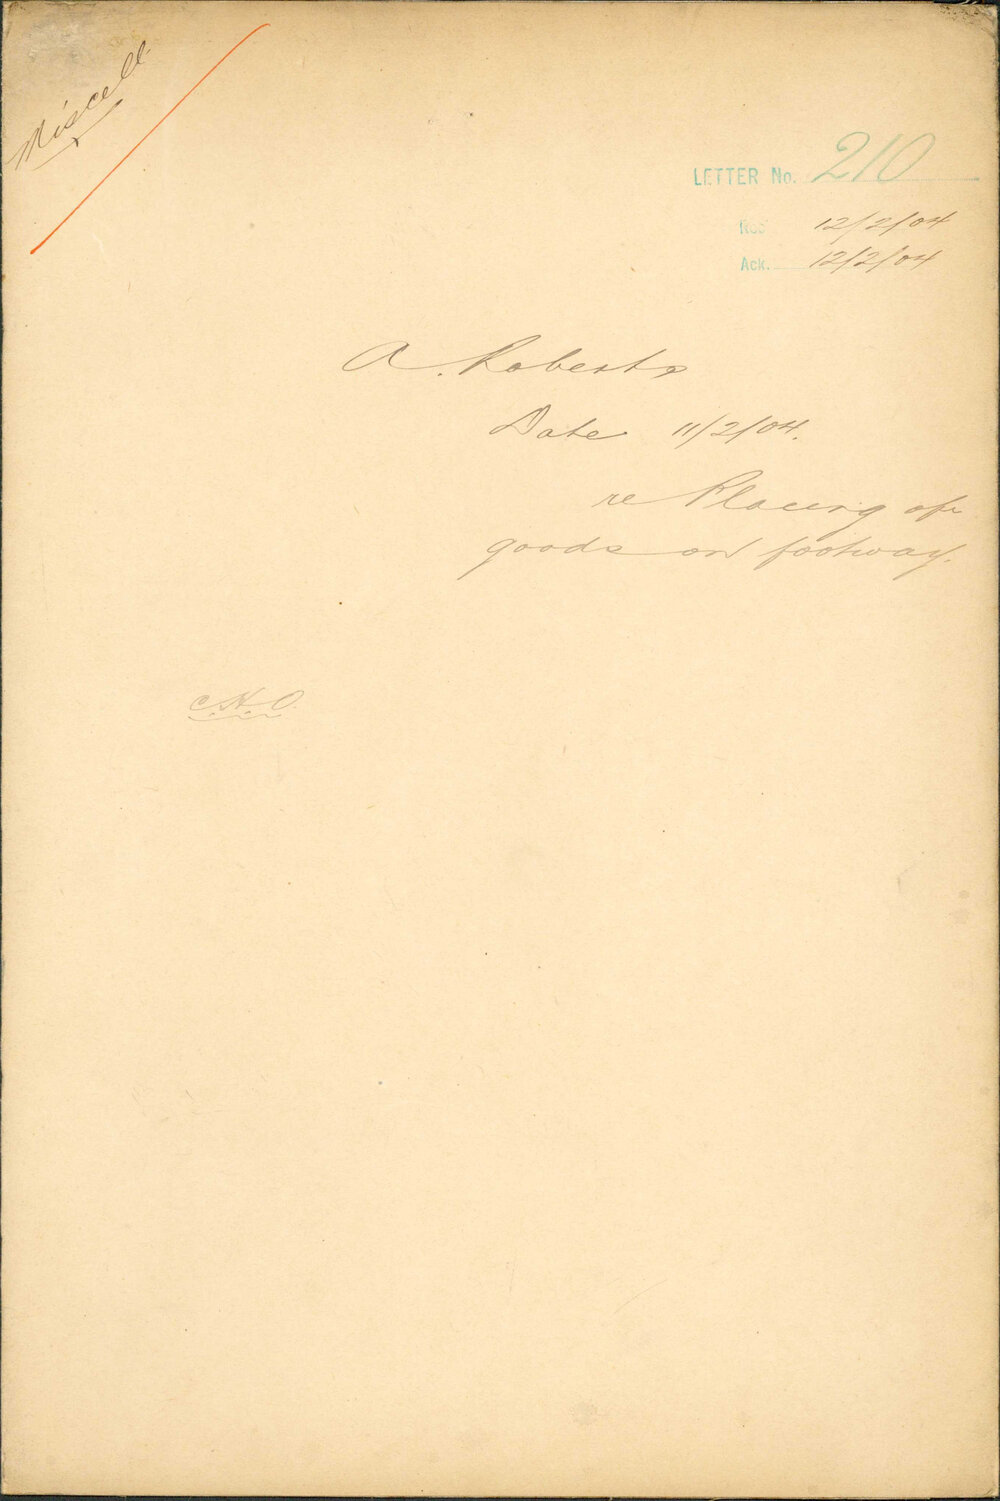 Miscell
LETTER No. 210
Rec 12/2/04
Ack. 12/2/04
A. Roberts
Date 11/2/04.
re Placing of
goods on footway.
C.H.O.